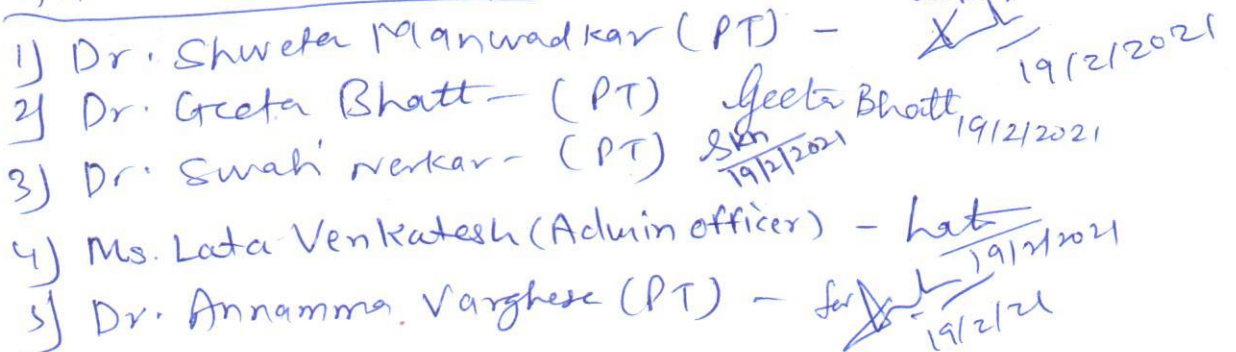 1) Dr. Shweta Manwadkar (PT) - 19/2/2021
2) Dr. Geeta Bhatt - (PT) Geeta Bhatt 19/2/2021
3) Dr. Swati Nerkar - (PT) SKn 19/2/2021
4) Ms. Lata Venkatesh (Admin officer) - Lata 19/2/2021
5) Dr. Annamma Varghese (PT) - for 19/2/21